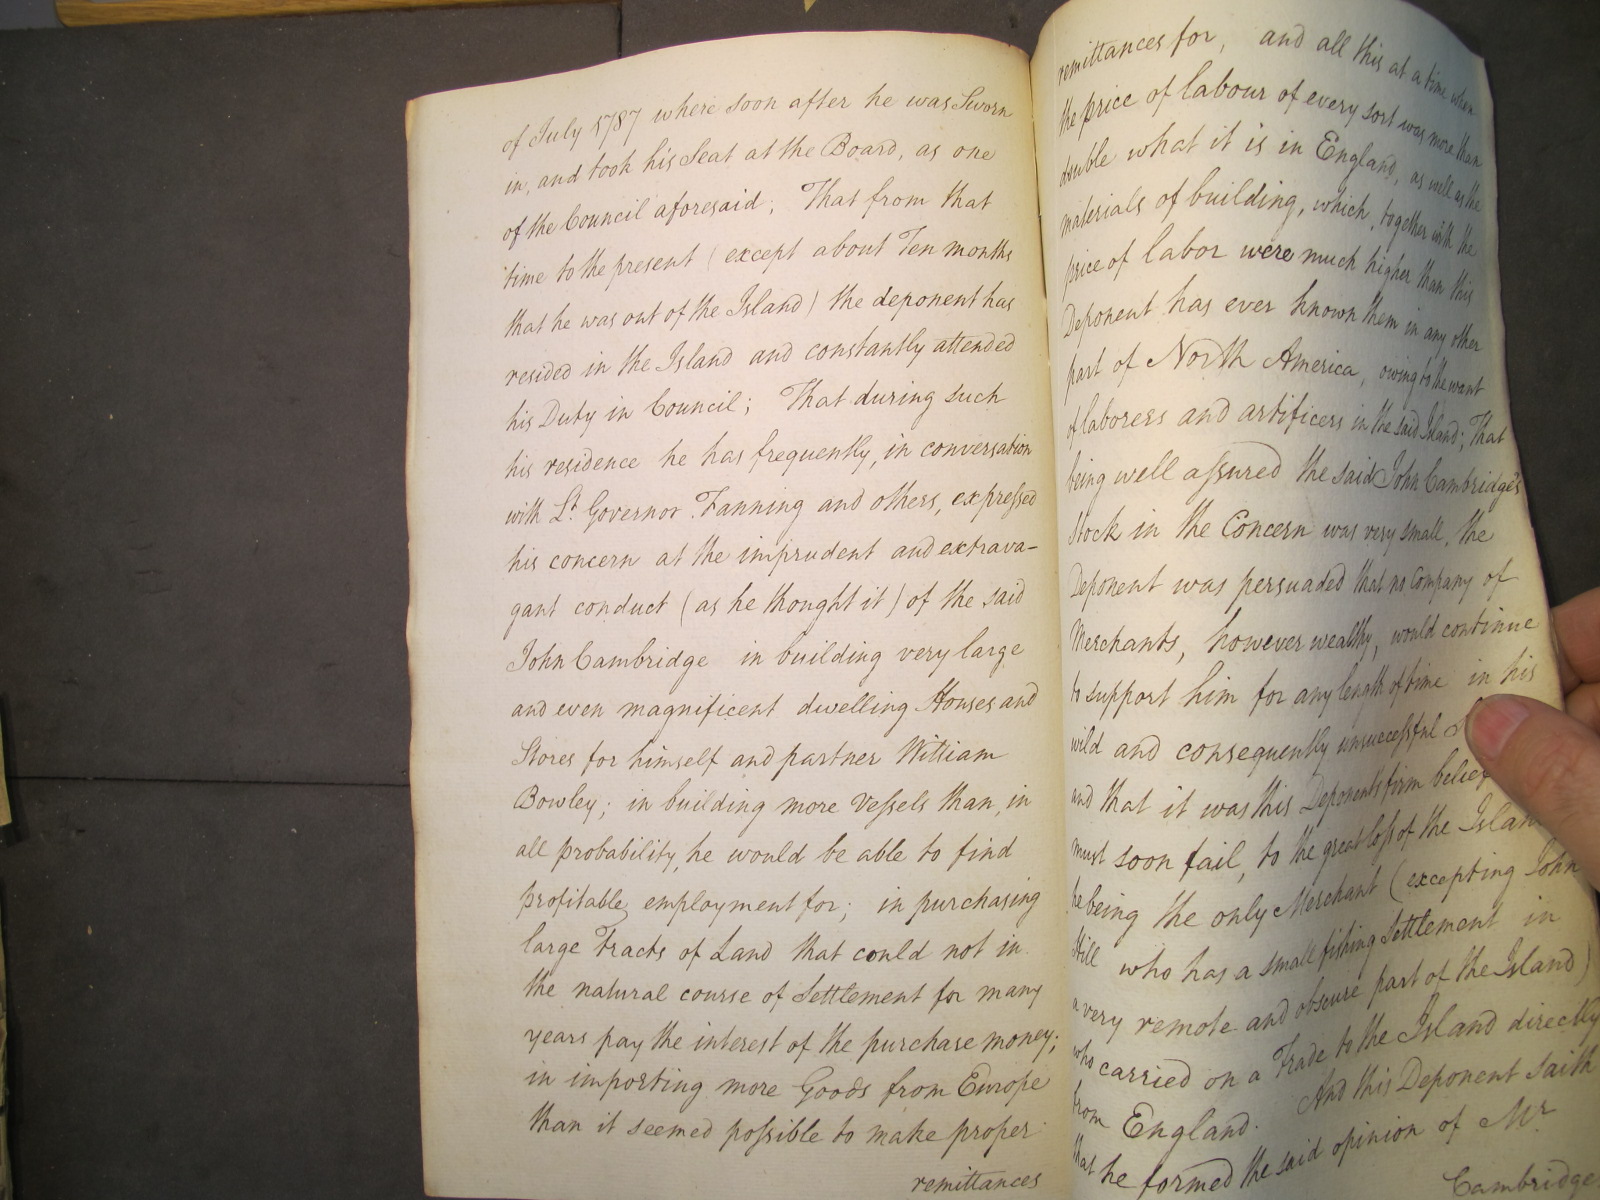 of July 1787 where soon after he was Sworn
in, and took his Seat at the Board, as one
of the Council aforesaid; That from that
time to the present (except about Ten months
that he was out of the Island) the deponent has
resided in the Island and constantly attended
his Duty in Council; That during such
his residence he has frequently, in conversation
with Lt. Governor Fanning and others, expressed
his concern at the imprudent and extrava-
gant conduct (as he thought it) of the said
John Cambridge in building very large
and even magnificent dwelling Houses and
Stores for himself and partner William
Bowley; in building more Vessels than, in
all probability, he would be able to find
profitable employment for; in purchasing
large Tracts of Land that could not in
the natural course of Settlement for many
years pay the interest of the purchase money;
in importing more Goods from Europe
than it seemed possible to make proper
remittances
remittances for, and all this at a time when
the price of labour of every sort was more than
double what it is in England, as well as the
materials of building, which, together with the
price of labor were much higher than this
Deponent has ever known them in any other
part of North America, owing to the want
of laborers and artificers in the said Island; That
being well assured the said John Cambridge's
Stock in the Concern was very small, the
Deponent was persuaded that no Company of
Merchants, however wealthy, would continue
to support him for any length of time in his
wild and consequently unsuccessful
and that it was this Deponents firm belief
must soon fail, to the great loss of the Island
he being the only Merchant (excepting John
Hill who has a small fishing Settlement in
a very remote and obscure part of the Island)
who carried on a Trade to the Island directly
from England. And this Deponent saith
that he formed the said opinion of Mr.
Cambridge